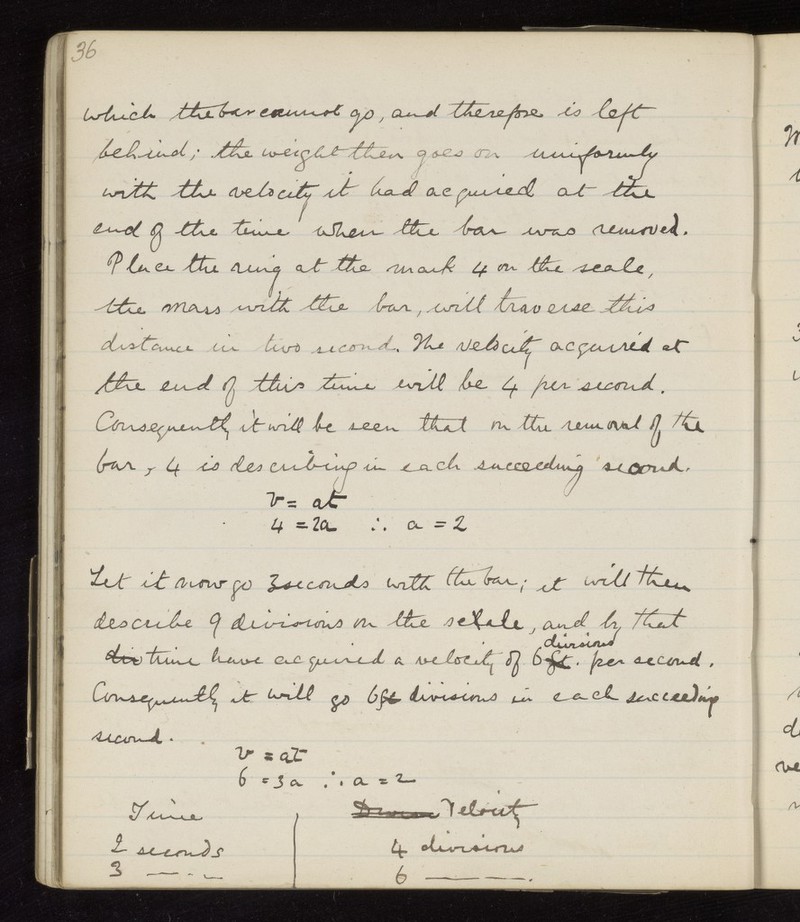 36
which the bar cannot go, and therefore is left
behind; the weight then goes on uniformly
with the velocity it had acquired at the
end of the time when the bar was removed.
Place the ring at the mark 4 on the scale,
the mass with the bar, will traverse this
distance in two second. The velocity acquired at
the end of this time will be 4 per second.
Consequently it will be seen that on the removal of the
bar, 4 is describing in each succeeding second.
v = at
4 = 2a ∴ a = 2
Let it now go 3 seconds with the bar; it will then
describe 9 divisions on the scale, and by that
divisions
dis time have acquired a velocity of 6 ft. per second.
Consequently it will go 6 ft divisions in each succeeding
second.
v = at
6 = 3a ∴ a = 2
Time Velocity
2 seconds 4 divisions
3 — . — 6 ———.